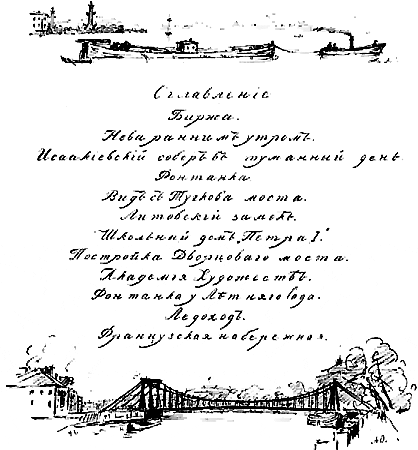 Оглавленіе
Биржа.
Нева раннимъ утромъ.
Исаакіевскій соборъ въ туманный день
Фонтанка
Видъ съ Тучкова моста.
Литовскій замокъ.
"Школьный домъ Петра I."
Постройка Дворцоваго моста.
Академія Художествъ.
Фонтанка у Лѣтняго сада.
Ледоходъ.
Французская набережная.
АО.